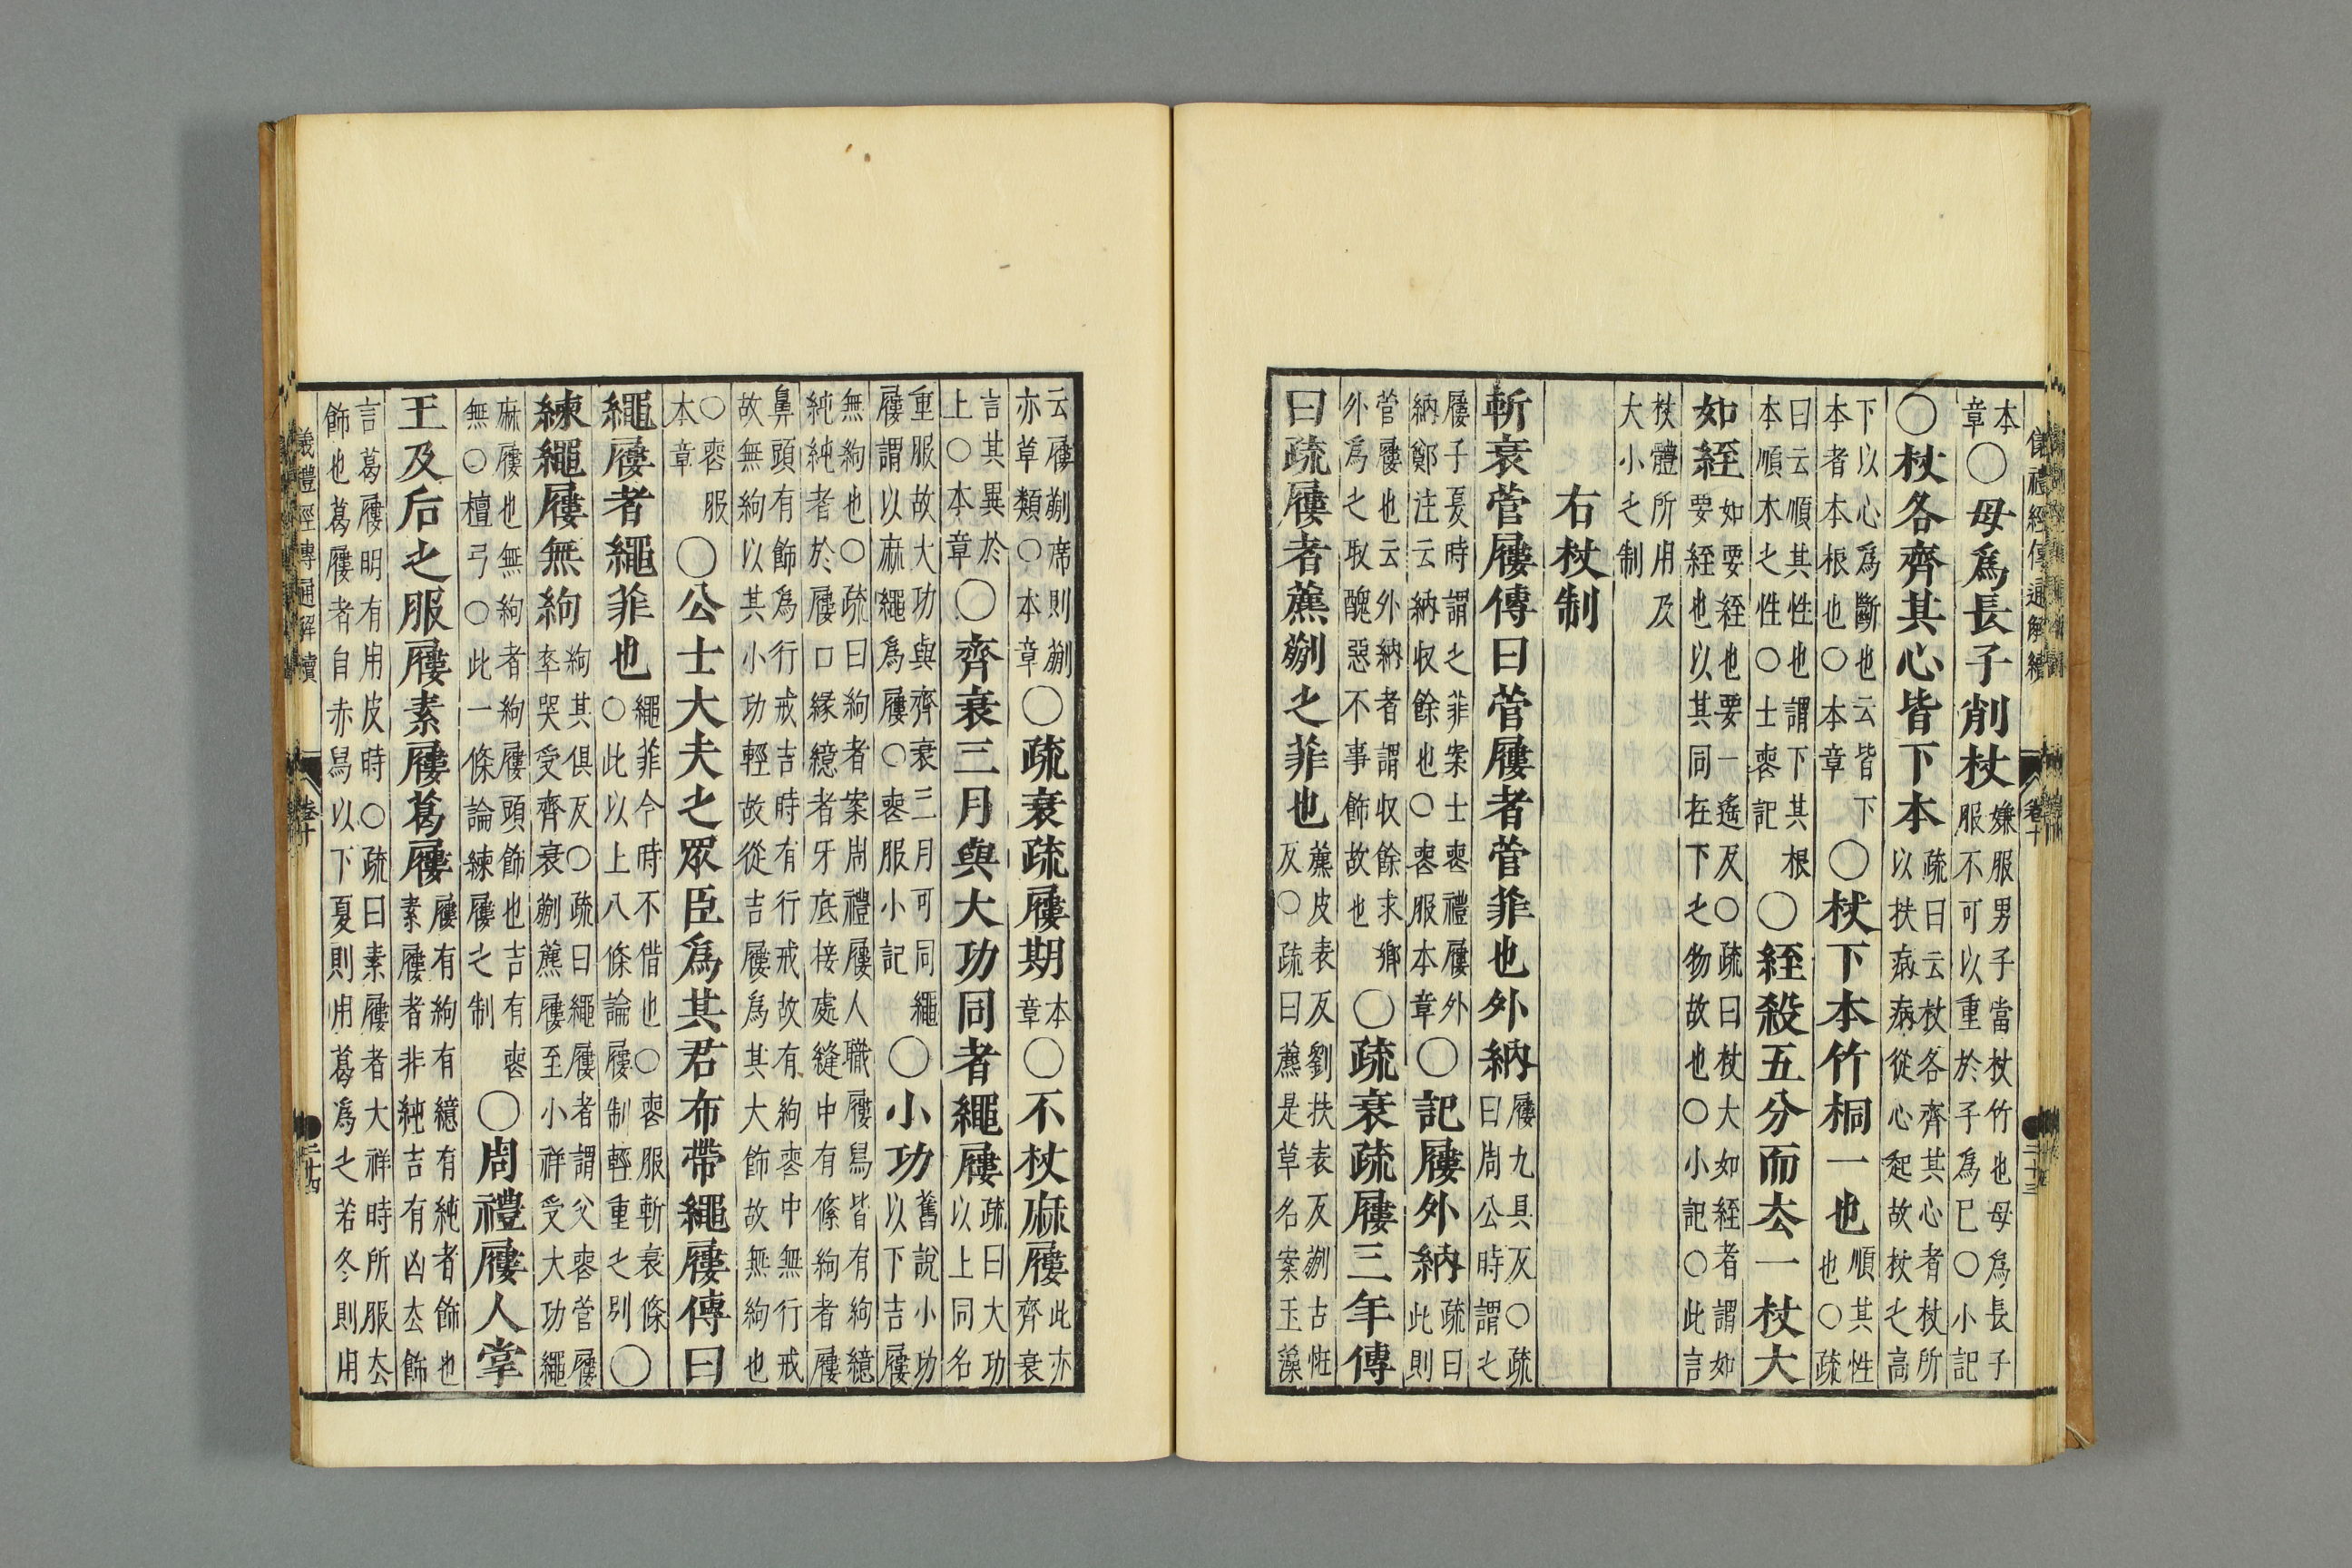 儀禮經傳通解續 卷十 二十三
本章○母爲長子削杖嫌服男子當杖竹也母爲長子服不可以重於子爲巳○小記
○杖各齊其心皆下本疏曰云杖各齊其心者杖所以扶病病從心起故杖之高
下以心爲斷也云皆下本者本根也○本章○杖下本竹桐一也順其性也○疏
曰云順其性也謂下其根本順木之性○士喪記○絰殺五分而去一杖大
如絰如要絰也要一遙反○疏曰杖大如絰者謂如要絰也以其同在下之物故也○小記○此言
杖體所用及大小之制
右杖制
斬衰菅屨傳曰菅屨者菅菲也外納屨九具反○疏曰周公時謂之
屨子夏時謂之菲案士喪禮屨外納鄭注云納收餘也○喪服本章○記屨外納疏曰此則
菅屨也云外納者謂收餘末鄉外爲之取醜惡不事飾故也○疏衰疏屨三年傳
曰疏屨者藨蒯之菲也藨皮表反劉扶表反蒯古恠反○疏曰藨是草名案玉藻
云屨蒯席則蒯亦草類○本章○疏衰疏屨期本章○不杖麻屨此亦齊衰
言其異於上○本章○齊衰三月與大功同者繩屨疏曰大功以上同名
重服故大功與齊衰三月可同繩屨謂以麻繩爲屨○喪服小記○小功舊說小功以下吉屨
無絇也○疏曰絇者案周禮屨人職屨舄皆有絇繶純純者於屨口緣繶者牙底接處縫中有絛絇者屨
鼻頭有飾爲行戒吉時有行戒故有絇喪中無行戒故無絇以其小功輕故從吉屨爲其大飾故無絇也
○喪服本章○公士大夫之眾臣爲其君布帶繩屨傳曰
繩屨者繩菲也繩菲今時不借也○喪服斬衰條○此以上八條論屨制輕重之別○
練繩屨無絇絇其俱反○疏曰繩屨者謂父喪菅屨卒哭受齊衰蒯藨屨至小祥受大功繩
麻屨也無絇者絇屨頭飾也吉有喪無○檀弓○此一條論練屨之制○周禮屨人掌
王及后之服屨素屨葛屨屨有絇有繶有純者飾也素屨者非純吉有凶去飾
言葛屨明有用皮時○疏曰素屨者大祥時所服去飾也葛屨者自赤舄以下夏則用葛爲之若冬則用
儀禮經傳通解續 卷十 二十四